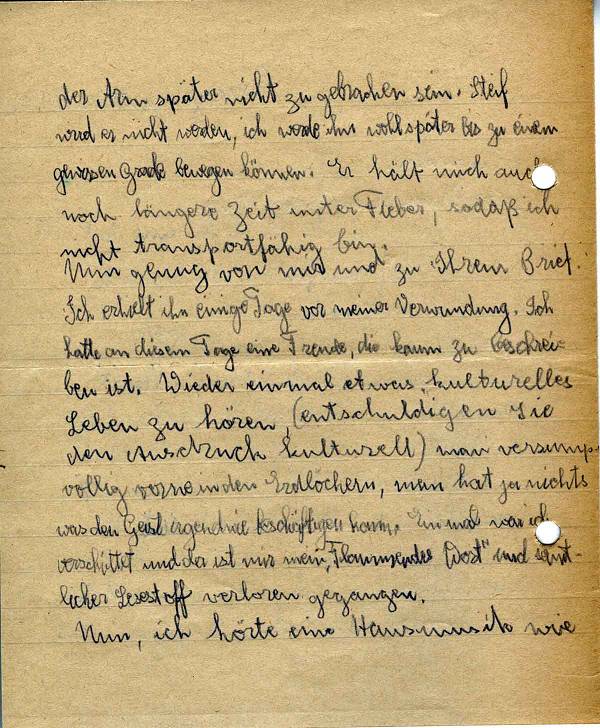 der Arm später nicht zu gebrauchen sein. Steif
wird er nicht werden, ich werde ihn wohl später bis zu einem
gewissen Grade bewegen können. Er hält mich auch
noch längere Zeit unter Fieber, sodaß ich
nicht transportfähig bin.
Nun genug von mir und zu Ihrem Brief.
Ich erhielt ihn einige Tage vor meiner Verwundung. Ich
hatte an diesem Tage eine Freude, die kaum zu beschrei-
ben ist. Wieder einmal etwas kulturelles
Leben zu hören, (entschuldigen Sie
den Ausdruck kulturell) man versump-
völlig vorne in den Erdlöchern, man hat ja nichts
was den Geist irgendwie beschäftigen kann. Einmal war ich
verschüttet und da ist mir mein „Flammendes Wort" und sämt-
licher Lesestoff verloren gegangen.
Nun, ich hörte eine Hausmusik wie